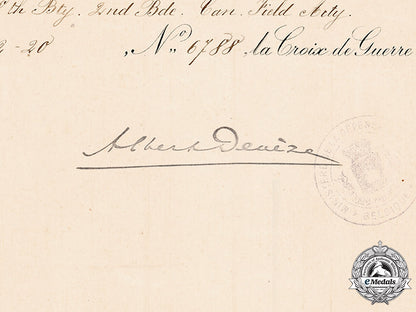 th Bty. 2nd Bde. Can. Field Arty.
2-20 „No. 6788, la Croix de Guerre
Albert Devèze
eMedals